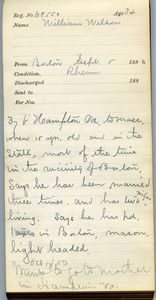 Reg. No. 6
Age 34
Name William Wilson
From Boston Sept. 5 1883
Condition, Rheum
Discharged 188
Sent to
For No.
3, b Hampton Va, to mass,
when 15 yrs. old and in the
State, most of the time
in the vicinity of Boston.
Says he has been married
three times, and has two
living. Says he has pd.
taxes in Boston, mason,
light headed.
Wants to go to mother
in Hampton Va.